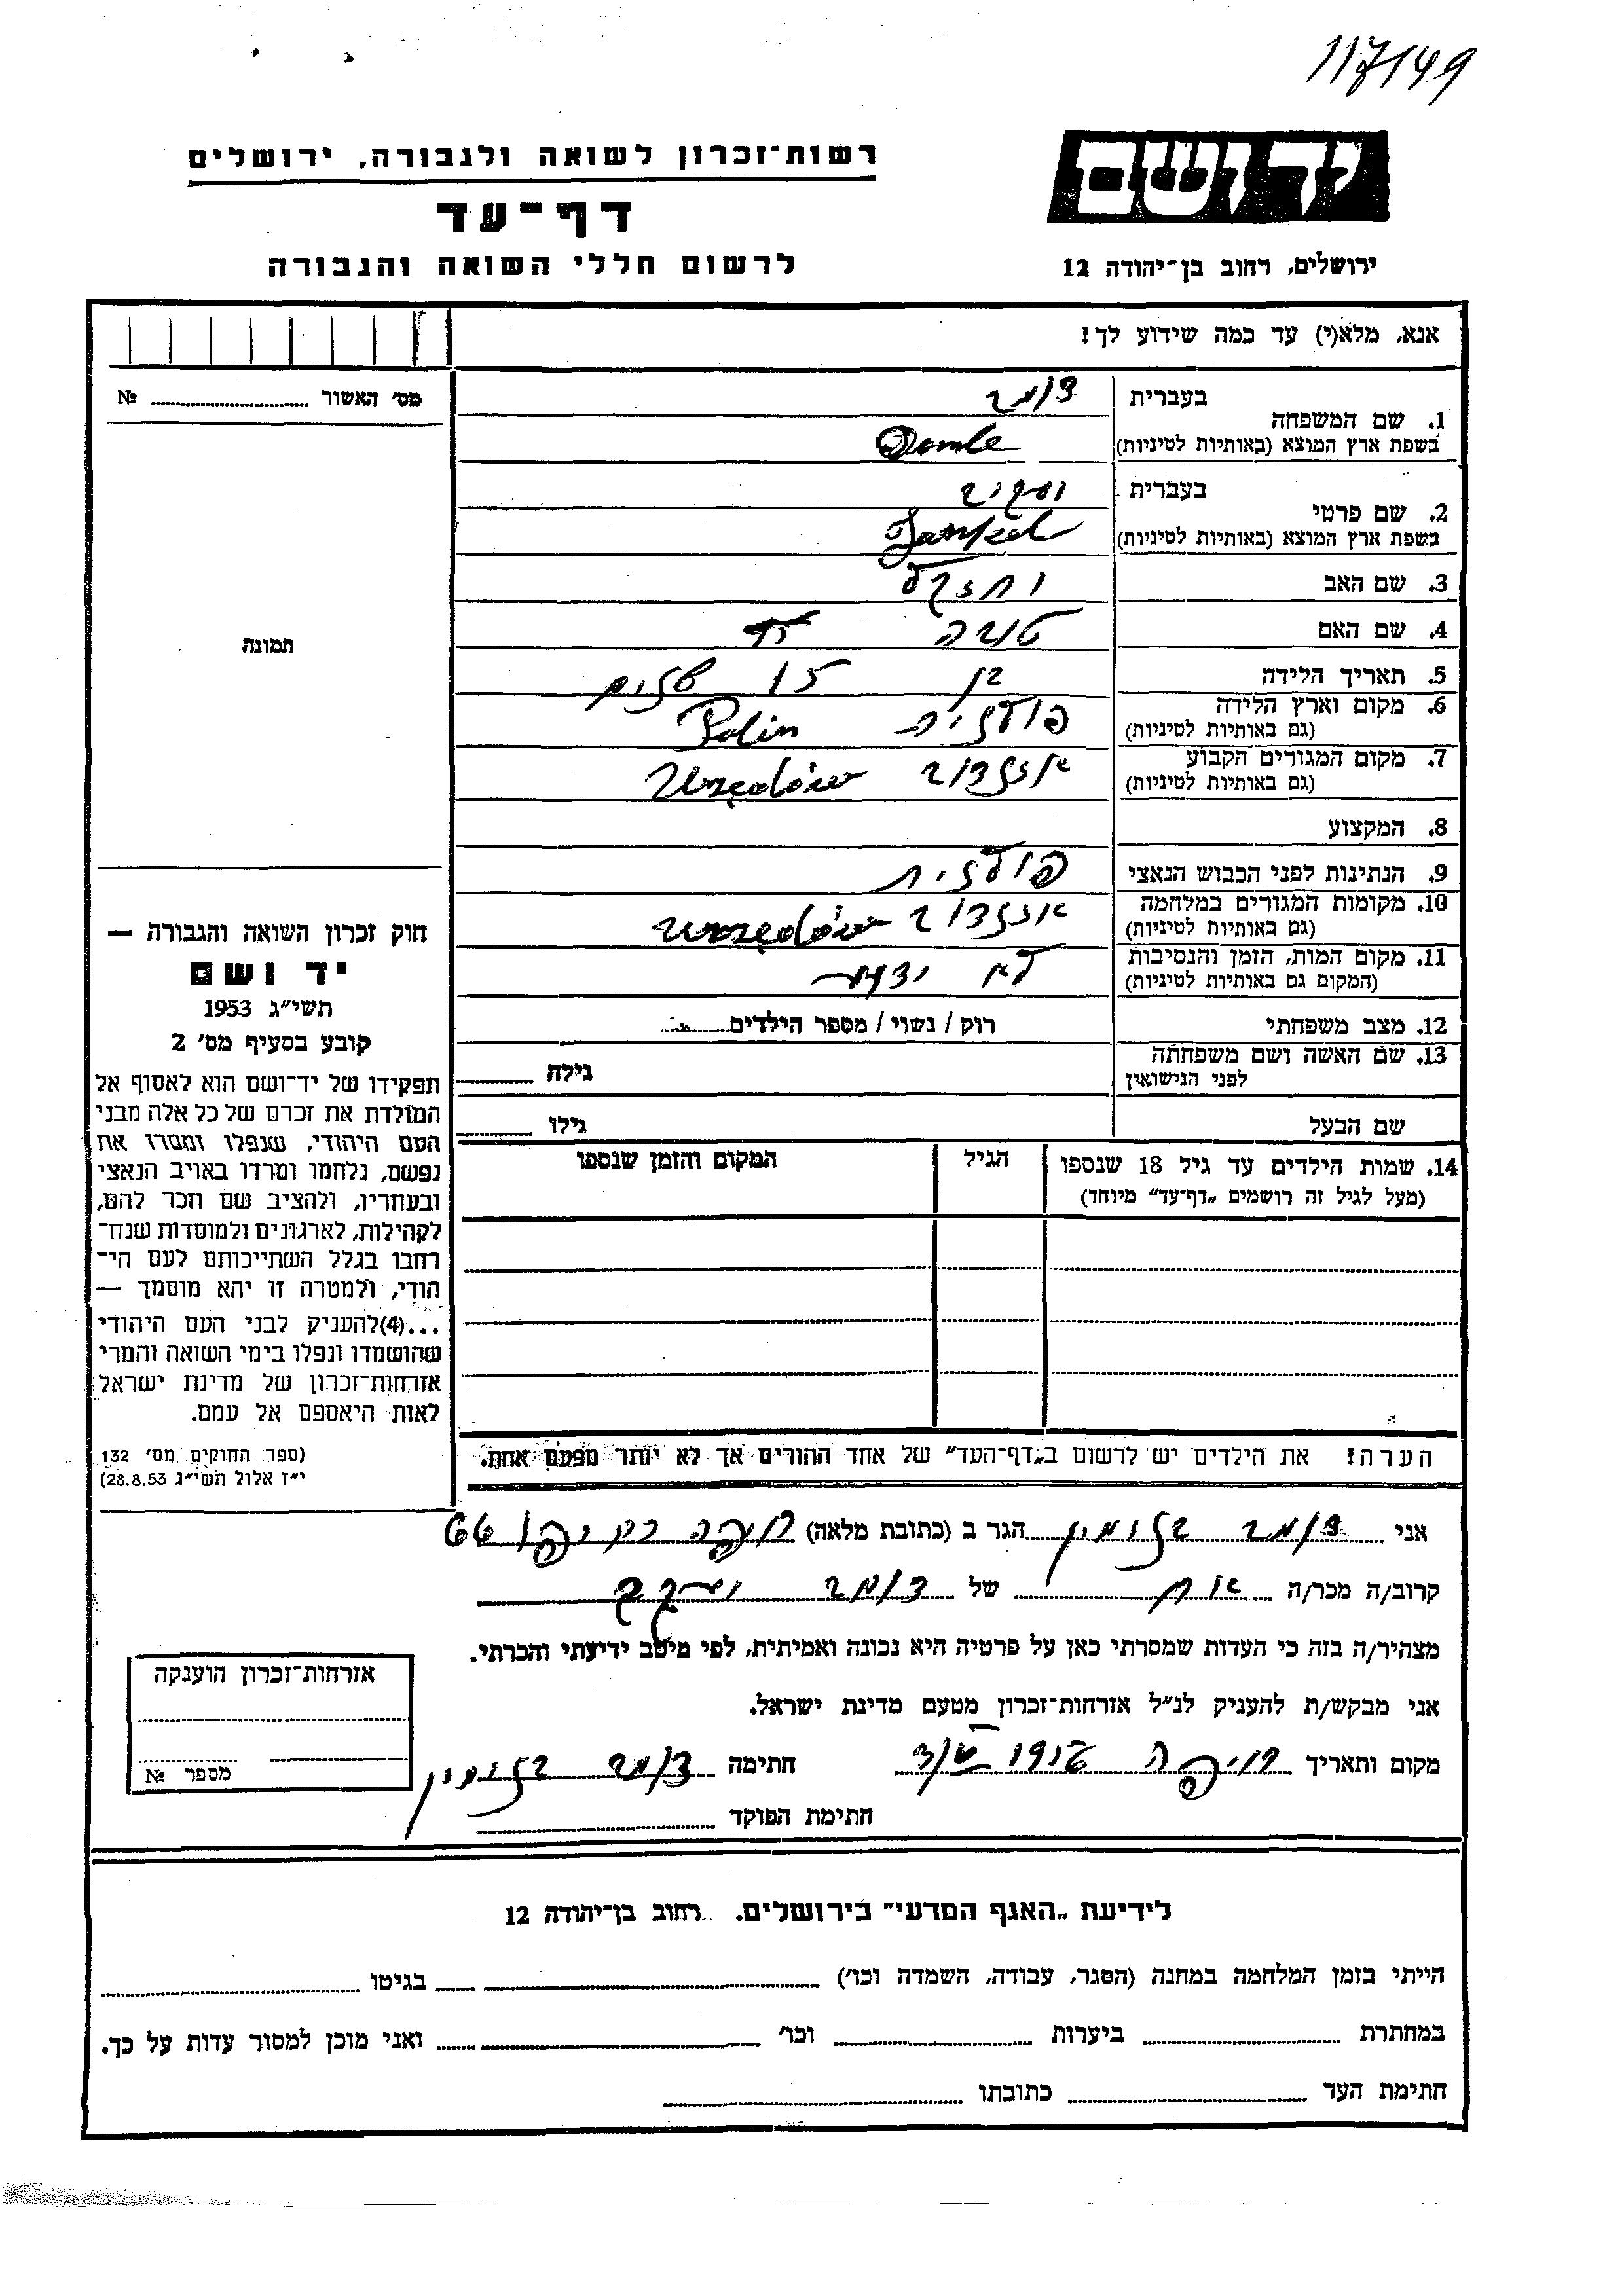 117149
יד ושם
רשות־זכרון לשואה ולגבורה, ירושלים
דף־עד
לרשום חללי השואה והגבורה
ירושלים, רחוב בן־יהודה 12
אנא, מלא(י) עד כמה שידוע לך!
מס׳ האשור № 
תמונה
1. שם המשפחה
בעברית
בשפת ארץ המוצא (באותיות לטיניות)
2. שם פרטי
בעברית יעקוב
בשפת ארץ המוצא (באותיות לטיניות) Jankel
3. שם האב יחזקל
4. שם האם טובה
5. תאריך הלידה בן 15 שנים
6. מקום וארץ הלידה פולניה Polin
(גם באותיות לטיניות)
7. מקום המגורים הקבוע Urzędów
(גם באותיות לטיניות)
8. המקצוע
9. הנתינות לפני הכבוש הנאצי פולנית
10. מקומות המגורים במלחמה Urzędów
(גם באותיות לטיניות)
11. מקום המות, הזמן והנסיבות לא
(המקום גם באותיות לטיניות)
12. מצב משפחתי רוק / נשוי / מספר הילדים
13. שם האשה ושם משפחתה
לפני הנישואין גילה
שם הבעל גילו
14. שמות הילדים עד גיל 18 שנספו הגיל המקום והזמן שנספו
(מעל לגיל זה רושמים „דף־עד״ מיוחד)
הערה! את הילדים יש לרשום ב„דף־העד״ של אחד ההורים אך לא יותר מפעם אחת.
חוק זכרון השואה והגבורה —
יד ושם
תשי״ג 1953
קובע בסעיף מס׳ 2
תפקידו של יד־ושם הוא לאסוף אל
המולדת את זכרם של כל אלה מבני
העם היהודי, שנפלו ומסרו את
נפשם, נלחמו ומרדו באויב הנאצי
ובעוזריו, ולהציב שם וזכר להם,
לקהילות, לארגונים ולמוסדות שנח־
רבו בגלל השתייכותם לעם הי־
הודי, ולמטרה זו יהא מוסמך —
...(4)להעניק לבני העם היהודי
שהושמדו ונפלו בימי השואה והמרי
אזרחות־זכרון של מדינת ישראל
לאות היאספם אל עמם.
(ספר החוקים מס׳ 132
י״ז אלול תשי״ג 28.8.53)
אני הגר ב (כתובת מלאה) חיפה
קרוב/ה מכר/ה אח של
מצהיר/ה בזה כי העדות שמסרתי כאן על פרטיה היא נכונה ואמיתית, לפי מיטב ידיעתי והכרתי.
אני מבקש/ת להעניק לנ״ל אזרחות־זכרון מטעם מדינת ישראל.
מקום ותאריך חיפה חתימה
חתימת הפוקד
אזרחות־זכרון הוענקה
מספר №
לידיעת „האגף המדעי״ בירושלים. רחוב בן־יהודה 12
הייתי בזמן המלחמה במחנה (הסגר, עבודה, השמדה וכו׳) בגיטו
במחתרת ביערות וכו׳ ואני מוכן למסור עדות על כך.
חתימת העד כתובתו